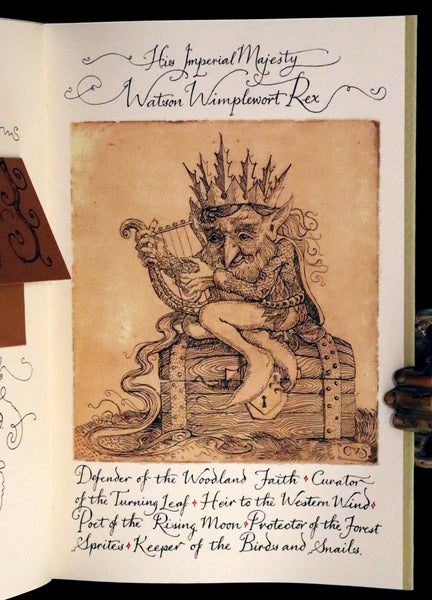 His Imperial Majesty
Watson Wimplewort Rex
Defender of the Woodland Faith ♦ Curator
of the Turning Leaf ♦ Heir to the Western Wind ♦
Poet of the Rising Moon ♦ Protector of the Forest
Sprites ♦ Keeper of the Birds and Snails.